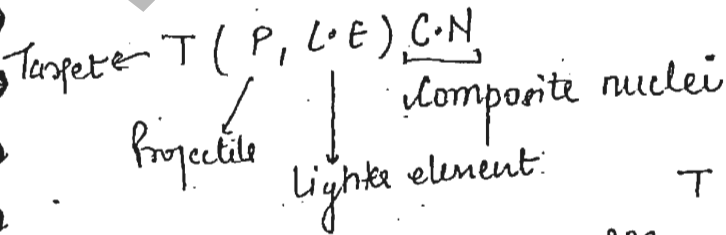 Target ← T ( P, L·E) C·N
Composite nuclei
Projectile
Lighter element:
T